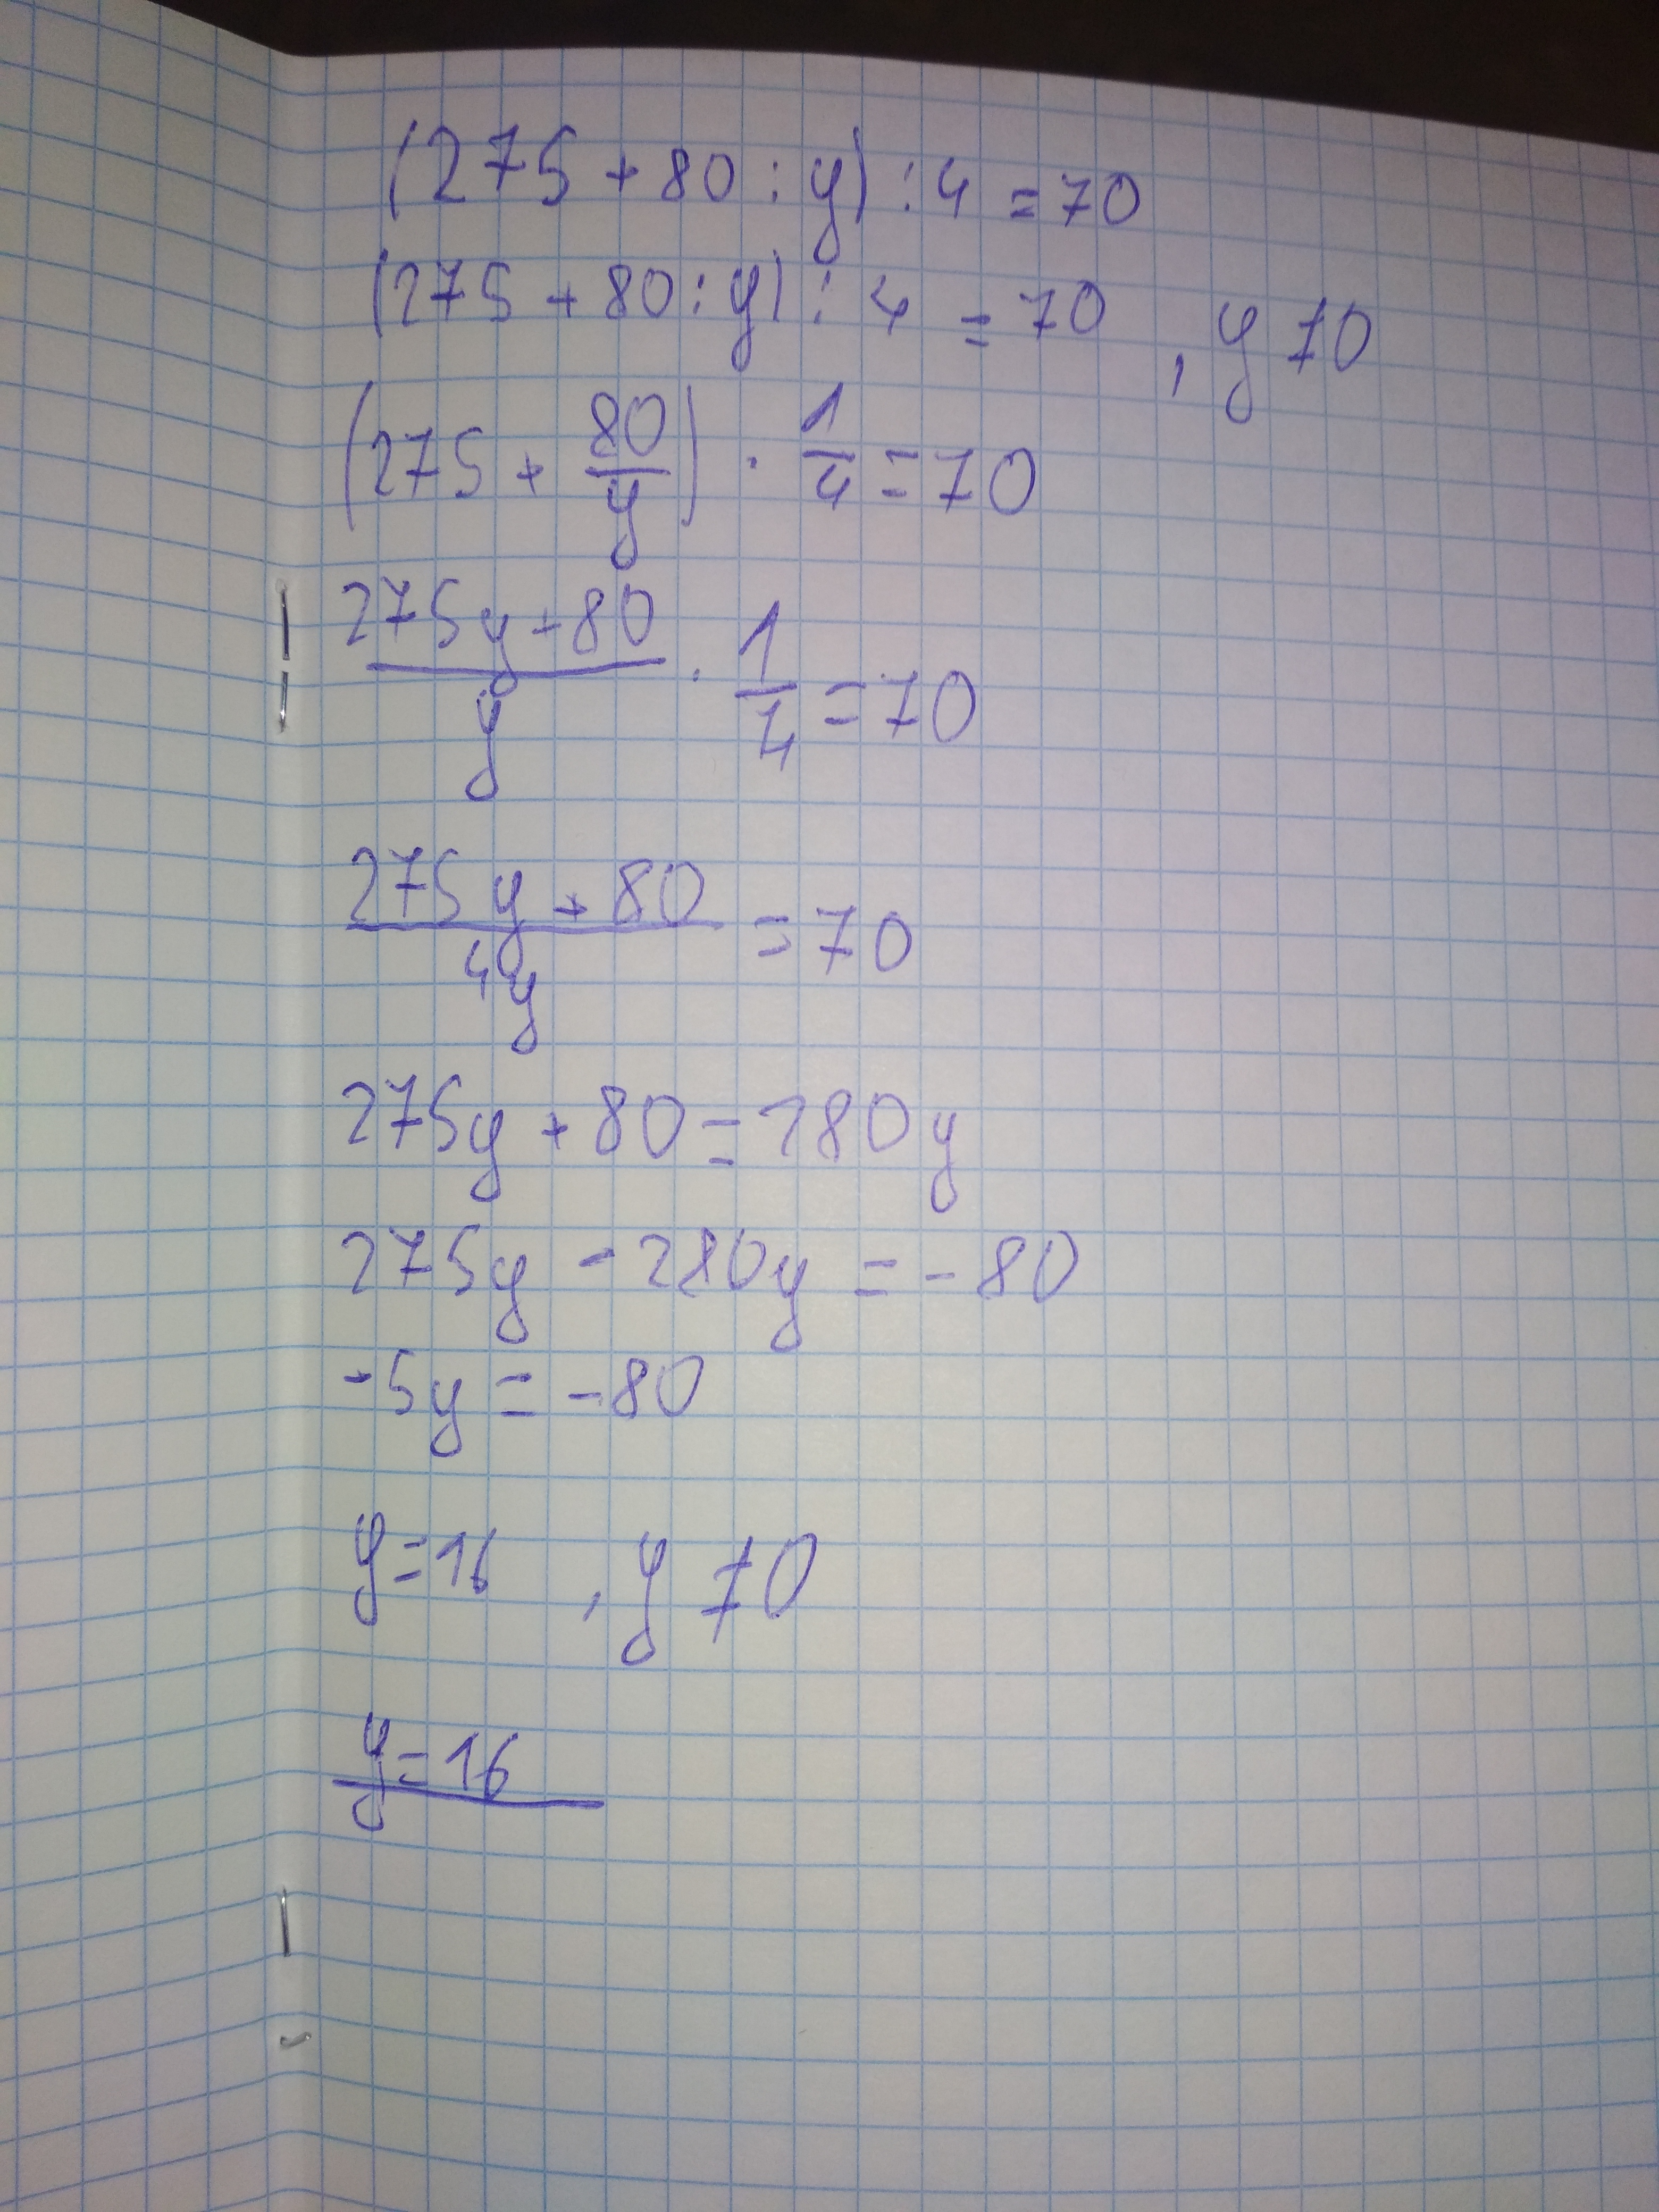 (275 + 80 : y) : 4 = 70
(275 + 80 : y) : 4 = 70 , y ≠ 0
(275 + 80/y) · 1/4 = 70
(275y + 80)/y · 1/4 = 70
(275y + 80)/4y = 70
275y + 80 = 280y
275y - 280y = -80
-5y = -80
y = 16 , y ≠ 0
y = 16